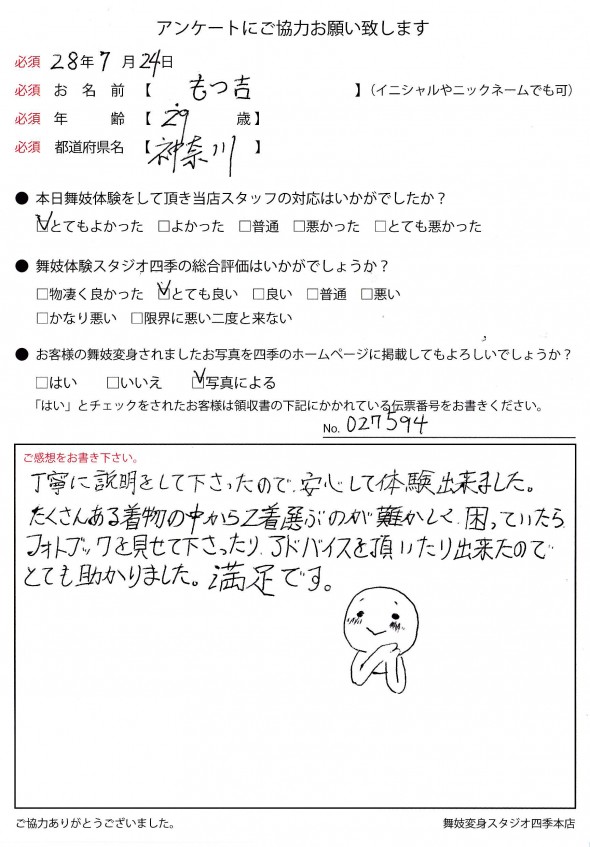 アンケートにご協力お願い致します
必須 28年7月24日
必須 お名前【 もつ吉 】（イニシャルやニックネームでも可）
必須 年齢【 29 歳】
必須 都道府県名【 神奈川 】
● 本日舞妓体験をして頂き当店スタッフの対応はいかがでしたか？
☑とてもよかった □よかった □普通 □悪かった □とても悪かった
● 舞妓体験スタジオ四季の総合評価はいかがでしょうか？
□物凄く良かった ☑とても良い □良い □普通 □悪い
□かなり悪い □限界に悪い二度と来ない
● お客様の舞妓変身されましたお写真を四季のホームページに掲載してもよろしいでしょうか？
□はい □いいえ ☑写真による
「はい」とチェックをされたお客様は領収書の下記にかかれている伝票番号をお書きください。
No. 027594
ご感想をお書き下さい。
丁寧に説明をして下さったので、安心して体験出来ました。
たくさんある着物の中から2着選ぶのが難かしく、困っていたら
フォトブックを見せて下さったり、アドバイスを頂いたり出来たので
とても助かりました。満足です。
ご協力ありがとうございました。
舞妓変身スタジオ四季本店